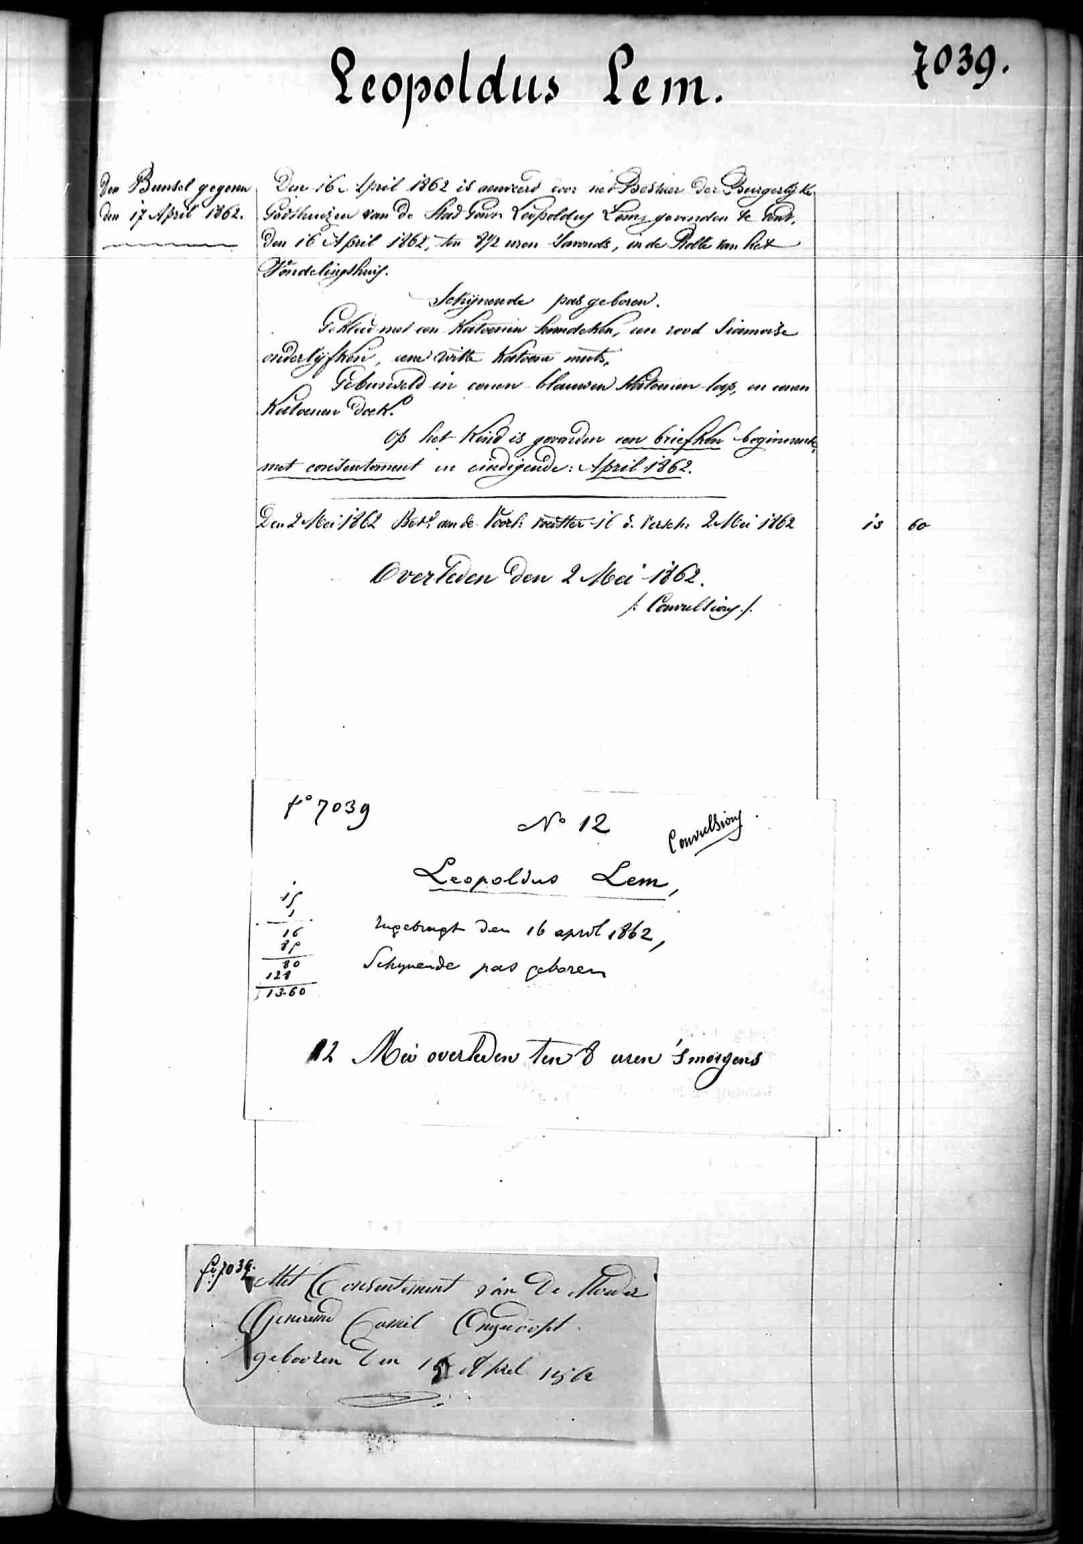 7039.
Leopoldus Lem.
Den Bunsel gegeven
den 17 April 1862.
Den 16 April 1862 is aenveerd door het Bestier der Burgerlijke
Godshuizen van de Stad Gent Leopoldus Lem, gevonden te Gent,
den 16 April 1862, ten 8 1/2 uren 's avonds, in de Rolle van het
Vondelingshuis.
Schijnende pas geboren.
Gekleed met een Katoenen hemdeken, een rood Siamoise
onderlijfken, eene witte Katoene muts,
Gebunseld in eenen blauwen Katoenen lap, en eenen
Katoenen doek.
Op het Kind is gevonden een briefken beginnende:
met consentement en eindigende: April 1862.
Den 2 Mei 1862 Bet. aan de Voorl. voedster 16 d. versch. 2 Mei 1862 13 60
Overleden den 2 Mei 1862.
/: Convulsions :/
f° 7039
N° 12
Convulsions.
Leopoldus Lem,
15
1
16
85
80
128
13.60
Ingebragt den 16 april 1862,
Schynende pas geboren
2 Mei overleden ten 8 uren 's morgens
f° 7039.
Met Consentement van De Moeder
Genaemd Camil Ongedoopt
gebooren den 16 April 1862